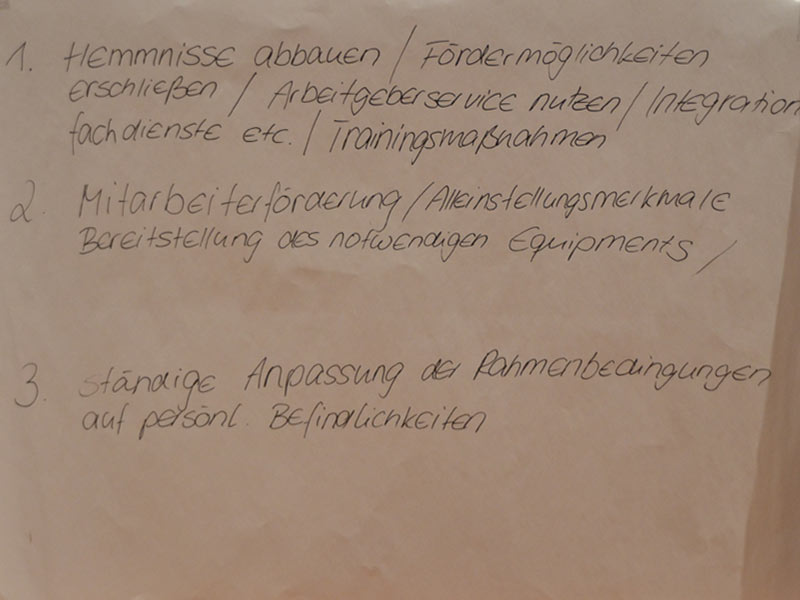 1. Hemmnisse abbauen / Fördermöglichkeiten
erschließen / Arbeitgeberservice nutzen / Integration
fachdienste etc. / Trainingsmaßnahmen
2. Mitarbeiterförderung / Alleinstellungsmerkmale
Bereitstellung des notwendigen Equipments /
3. ständige Anpassung der Rahmenbedingungen
auf persönl. Befindlichkeiten